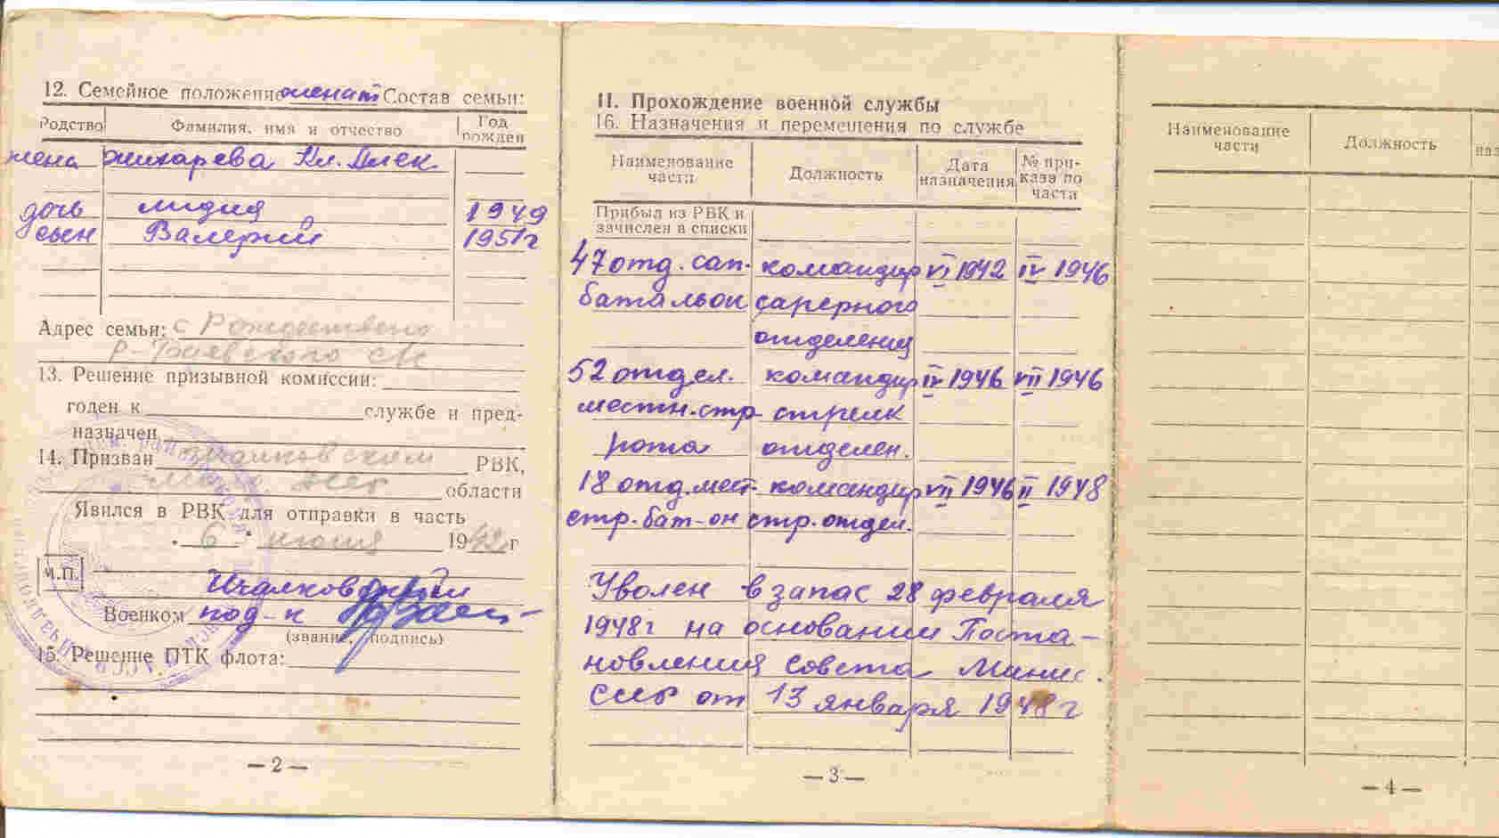 12. Семейное положение женат Состав семьи:
Родство Фамилия, имя и отчество Год рожден
жена Кл. Алек.
дочь Лидия 1949
сын Валерий 1951г
Адрес семьи: с Рождествено
13. Решение призывной комиссии:
годен к службе и пред-
назначен
14. Призван РВК,
области
Явился в РВК для отправки в часть
"6" июня 1942 г
М.П.
Военком под-к
(звание, подпись)
15. Решение ПТК флота:
— 2 —
II. Прохождение военной службы
16. Назначения и перемещения по службе
Наименование части Должность Дата назначения № при-каза по части
Прибыл из РВК и
зачислен в списки
47 отд. сап. командир VI 1942 IV 1946
батальон саперного
отделения
52 отдел. командир IV 1946 VII 1946
местн. стр. стрелк
рота отделен.
18 отд. мест. командир VII 1946 II 1948
стр. бат-он стр. отдел.
Уволен в запас 28 февраля
1948г на основании Поста-
новления Совета Минис.
СССР от 13 января 1948г
— 3 —
Наименование части Должность
наз
— 4 —